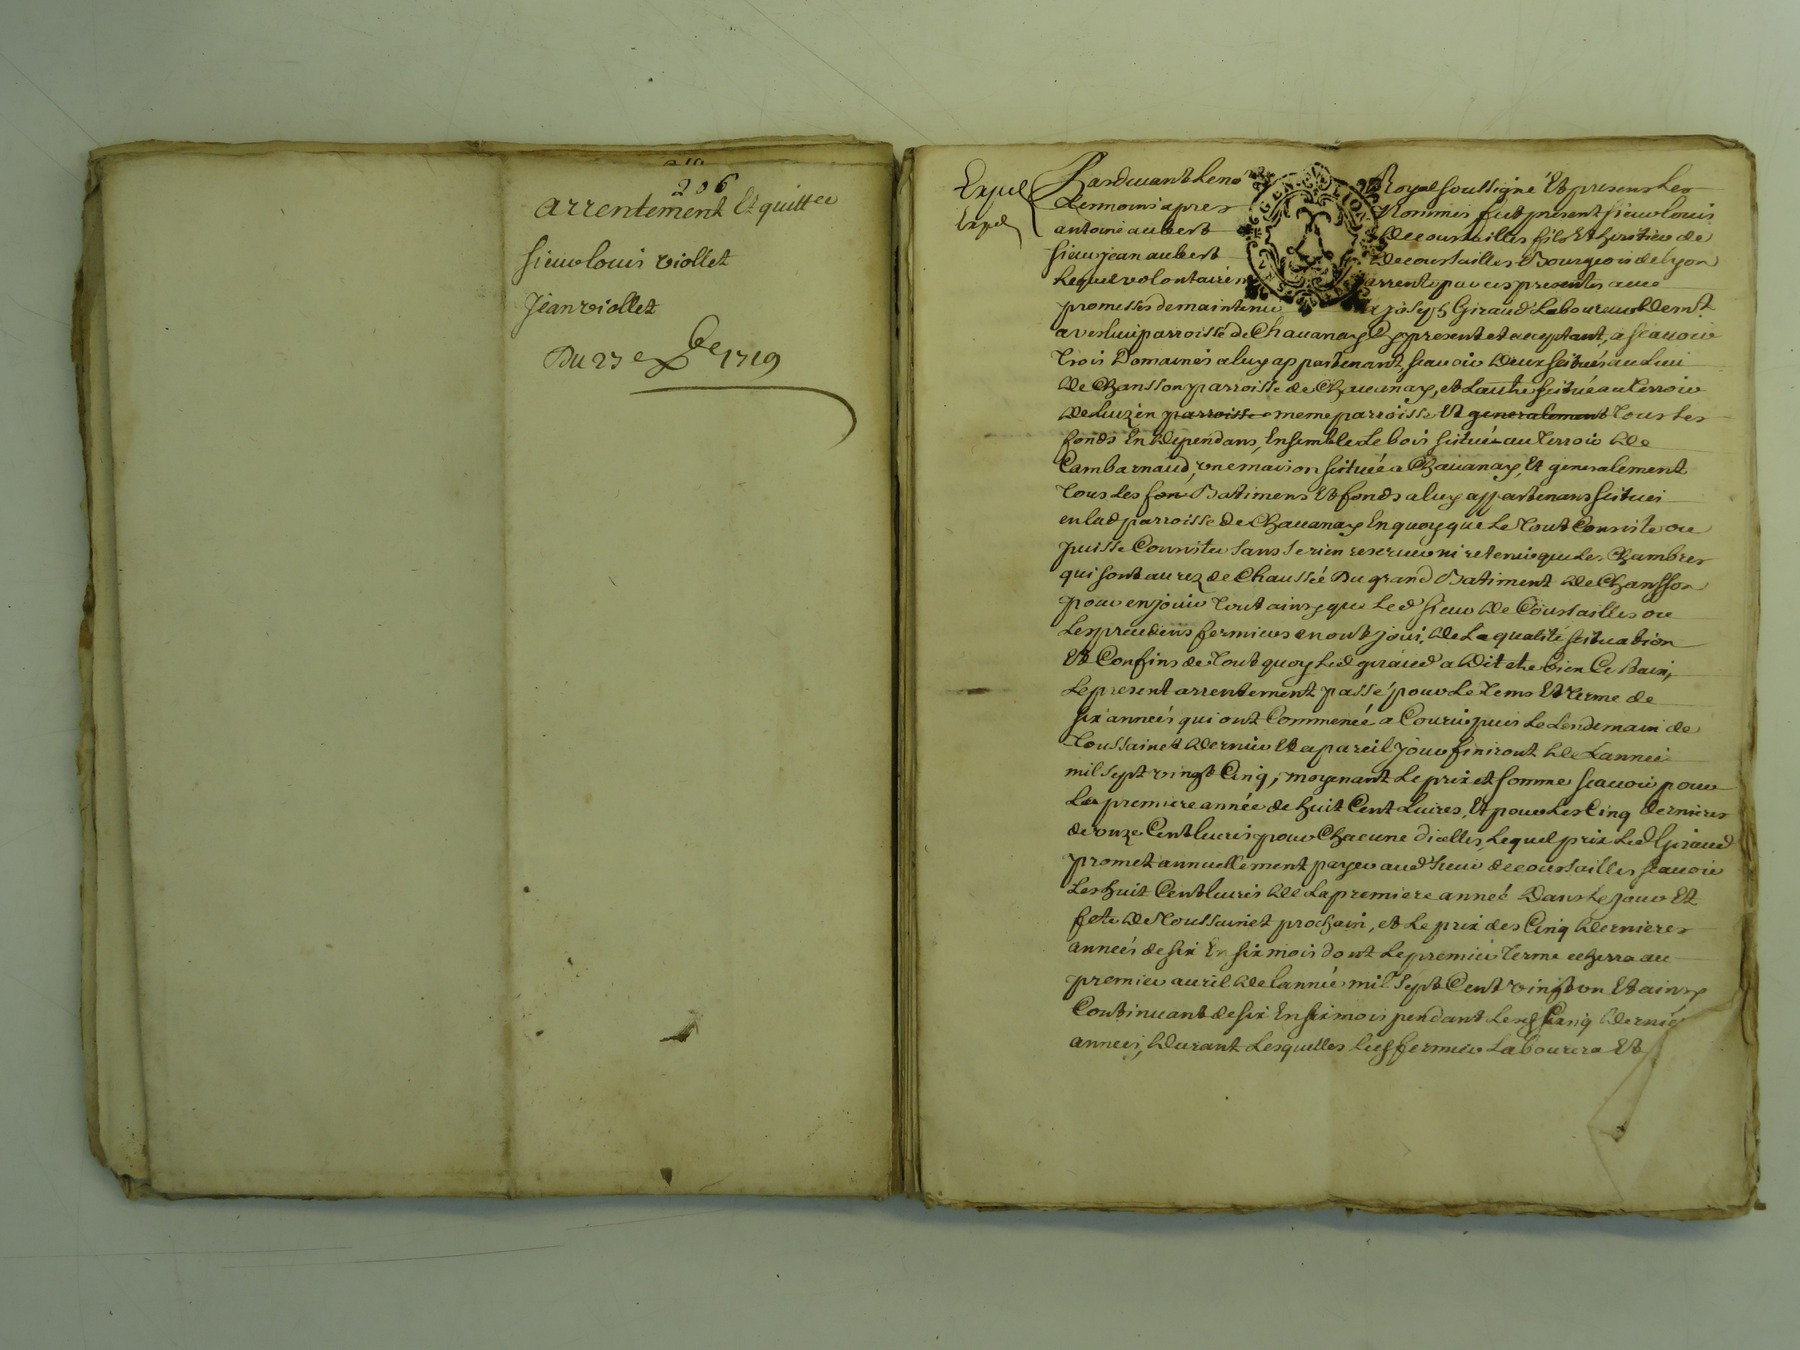 206
arrentement Et quittce
sieur louis viollet
Jean viollet
Du 27e Xbre 1719
Expee
Expee
Pardevant le no Royal soussigné Et presens les
temoins apres Nommés fut present sieur louis
antoine aubert de coursailles fils Et heritier de
sieur jean aubert de coursailles Bourgeois de lyon
Lequel volontairem arrente par ces presentes avec
promesse de maintenue a joseph Giraud Laboureur dem t
a verlui parroisse de Chavanay Cy present et aceptant, a scavoir
Trois Domaines a luy appartenant scavoir deux scitués au lieu
de Chansson parroisse de Chavanay, et Lautre scitué au Terroir
de Luzin parroisse meme parroisse Et generalement Tous les
fonds En dependans, Ensemble Le bois scitué au Terroir de
Cambarnaud, une maison scituée a Chavanay, Et generalement
Tous Les fon Batimens Et fonds a luy appartenans scitues
en lad parroisse de Chavanay En quoy que Le Tout Consiste ou
puisse Consiter sans se rien reserver ni retenir que Les Chambres
qui sont au rez de Chaussée Du grand Batiment de Chansson
pour en jouir Tout ainsy que Led sieur de Coursailles ou
Les precedens fermiers en ont joui, de La qualité scituation
Et Confins de Tout quoy Led giraud a dit etre bien Certain,
Le present arrentement passé pour Le Tems Et Terme de
six années qui ont Commencé a Courir puis Le Lendemain de
Toussainct dernier Et a pareil jour finiront de Lannée
mil sept vingt Cinq, moyenant Le prix et somme scavoir pour
La premiere année de huit Cent Livres, Et pour Les Cinq dernieres
de onze Cent livres pour Chacune dicelles, Lequel prix Led Giraud
promet annuellement payer aud sieur de coursailles scavoir
Les huit Cent livres de La premiere année Dans Le jour Et
fete de Toussainct prochain, et Le prix des Cinq dernieres
années de six En six mois dont Le premier Terme echerra au
premier avril de lannée mil sept Cent vingt un Et ainsy
Continuant de six En six mois pendant Lesd Cinq dernie
années, durant Lesquelles led fermier Labourera Et